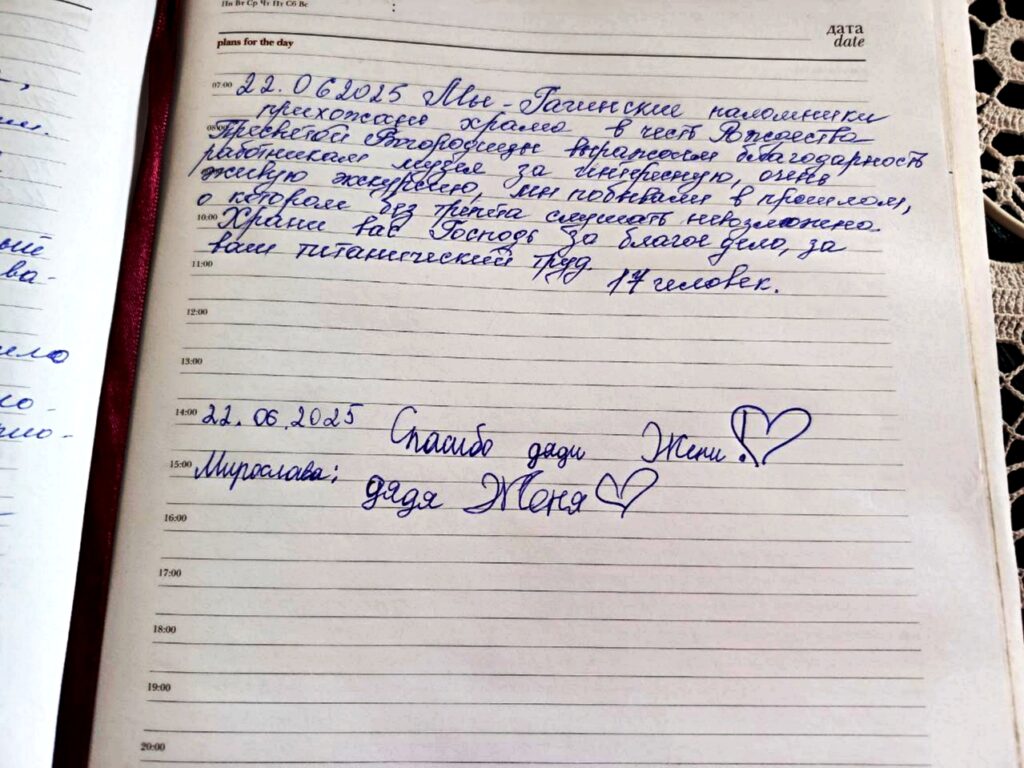 Пн Вт Ср Чт Пт Сб Вс
дата
date
plans for the day
07:00
22.06 2025 Мы - Гагинские паломники
прихожане храма в честь Рождества
Пресвятой Богородицы выражаем благодарность
работникам музея за интересную, очень
живую экскурсию, мы побывали в прошлом,
о котором без трепета слушать невозможно.
10:00
Храни вас Господь за благое дело, за
ваш титанический труд.
11:00
17 человек.
12:00
13:00
14:00
22.06.2025 Спасибо дяди Жени!
15:00
Мирослава: дядя Женя
16:00
17:00
18:00
19:00
20:00